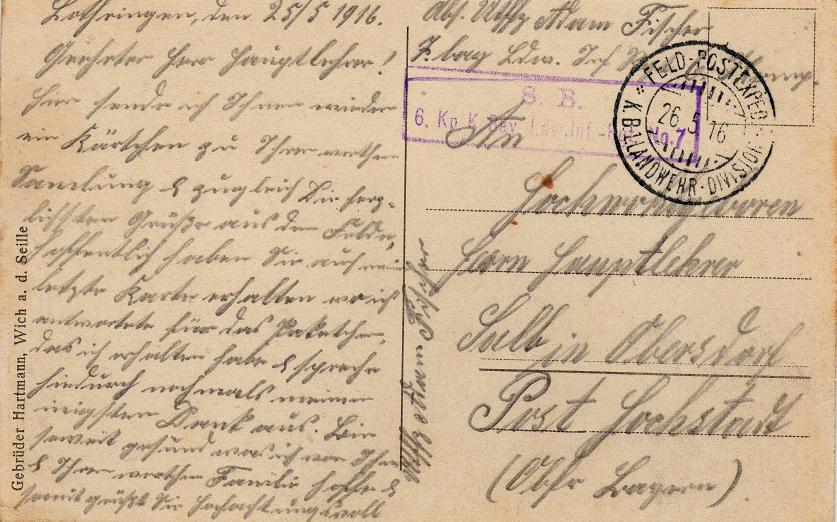 Lothringen, den 25/5 1916.
Geehrter Herr Hauptlehrer!
Hier sende ich Ihnen wieder
ein Kärtchen zu Ihrer werthen
Samlung & zugleich Die herz-
lichsten Grüße aus dem Felde,
hoffentlich haben Sie auch meine
letzte Karte erhalten wo ich
antwortete für das Paketchen,
das ich erhalten habe & spreche
hindurch nochmals meinen
innigsten Dank aus. Bin
soweit gesund was ich von Ihnen
& Ihrer werthen Familie hoffe &
somit grüßt Sie Hochachtungsvoll
Uffz Adam Fischer
Gebrüder Hartmann, Wich a. d. Seille
Abs. Uffz Adam Fischer
7. bay Ldw. Inf
S. B.
6. Kp. K. Bay. Ldw. Inf.-Rgt. No. 7
FELD-POSTEXPED.
26. 5. 16
K.B. LANDWEHR-DIVISION
An
Hochwohlgeboren
Herrn Hauptlehrer
in Obersdorf
Post Hochstadt
(Obfr Bayern).